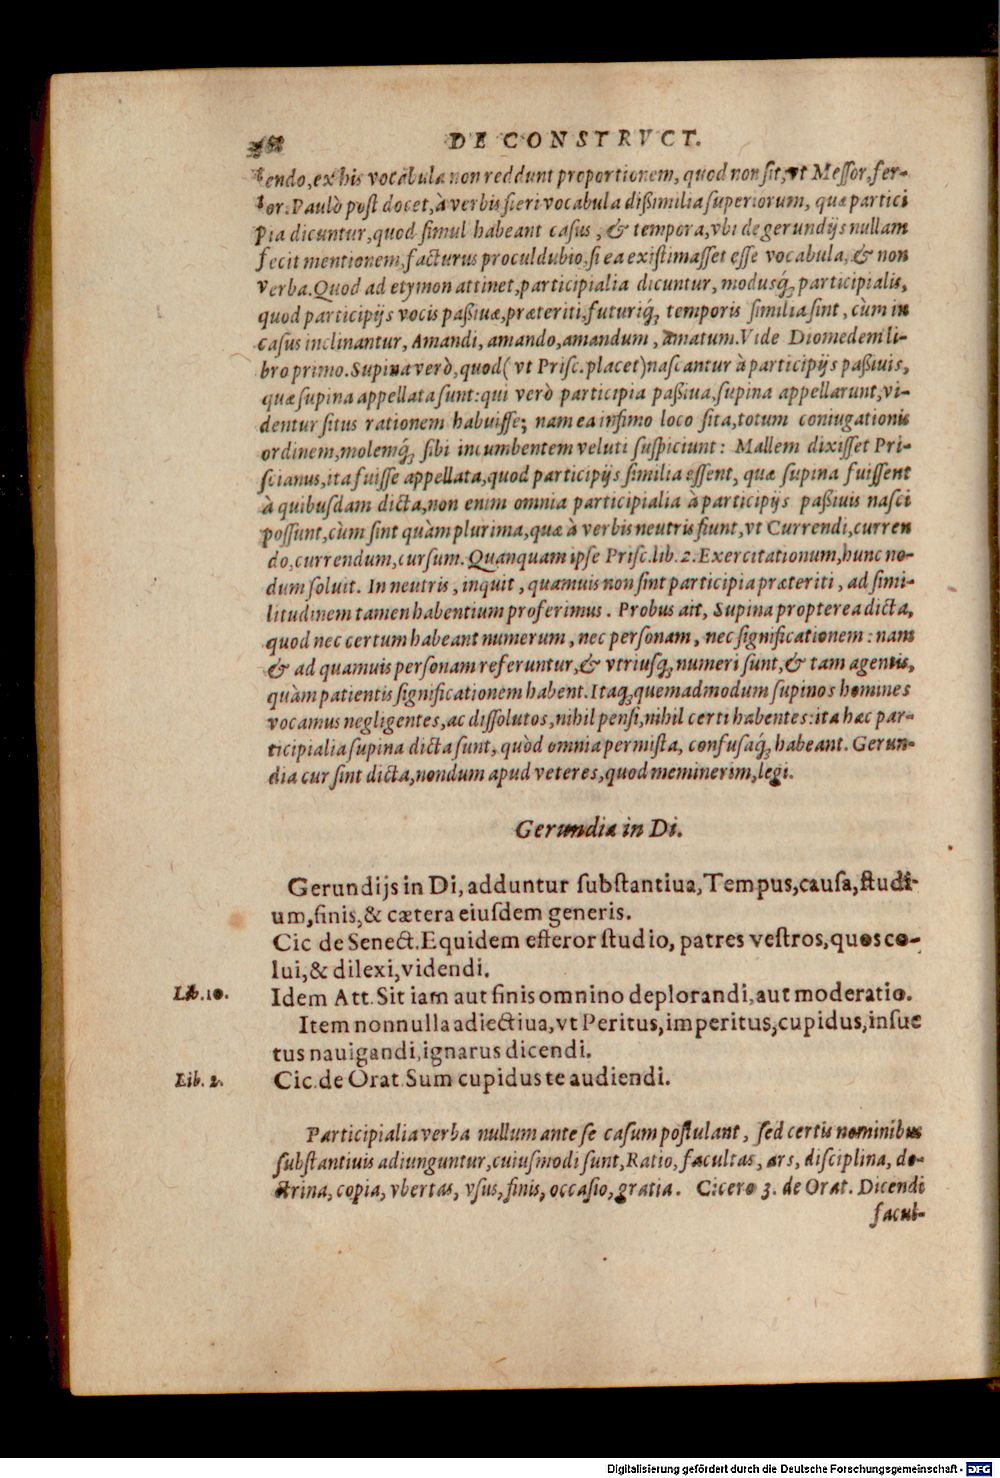 DE CONSTRVCT.
tendo, ex his vocabula non reddunt proportionem, quod non sit, vt Messor, fer-
tor. Paulò post docet, à verbis fieri vocabula dißimilia superiorum, quæ partici
pia dicuntur, quod simul habeant casus, & tempora, vbi de gerundijs nullam
fecit mentionem, facturus proculdubio, si ea existimasset esse vocabula, & non
verba. Quod ad etymon attinet, participialia dicuntur, modusq́; participialis,
quod participijs vocis paßiuæ, præteriti, futuriq́; temporis similia sint, cùm in
casus inclinantur, Amandi, amando, amandum, amatum. Vide Diomedem li-
bro primo. Supina verò, quod (vt Prisc. placet) nascantur à participijs paßiuis,
quæ supina appellata sunt: qui verò participia paßiua, supina appellarunt, vi-
dentur situs rationem habuisse; nam ea infimo loco sita, totum coniugationis
ordinem, molemq́; sibi incumbentem veluti suspiciunt: Mallem dixisset Pri-
scianus, ita fuisse appellata, quod participijs similia essent, quæ supina fuissent
à quibusdam dicta, non enim omnia participialia à participijs paßiuis nasci
possunt, cùm sint quàm plurima, quæ à verbis neutris fiunt, vt Currendi, curren
do, currendum, cursum. Quanquam ipse Prisc. lib. 2. Exercitationum, hunc no-
dum soluit. In neutris, inquit, quamuis non sint participia præteriti, ad simi-
litudinem tamen habentium proferimus. Probus ait, Supina propterea dicta,
quod nec certum habeant numerum, nec personam, nec significationem: nam
& ad quamuis personam referuntur, & vtriusq; numeri sunt, & tam agentis,
quàm patientis significationem habent. Itaq; quemadmodum supinos homines
vocamus negligentes, ac dissolutos, nihil pensi, nihil certi habentes: ita hæc par-
ticipialia supina dicta sunt, quòd omnia permista, confusaq́; habeant. Gerun-
dia cur sint dicta, nondum apud veteres, quod meminerim, legi.
Gerundia in Di.
Gerundijs in Di, adduntur substantiua, Tempus, causa, studi-
um, finis, & cætera eiusdem generis.
Cic de Senect. Equidem efferor studio, patres vestros, quos co-
lui, & dilexi, videndi.
Lib. 10.
Idem Att. Sit iam aut finis omnino deplorandi, aut moderatio.
Item nonnulla adiectiua, vt Peritus, imperitus, cupidus, insue
tus nauigandi, ignarus dicendi.
Lib. 2.
Cic. de Orat. Sum cupidus te audiendi.
Participialia verba nullum ante se casum postulant, sed certis nominibus
substantiuis adiunguntur, cuiusmodi sunt, Ratio, facultas, ars, disciplina, do-
ctrina, copia, vbertas, vsus, finis, occasio, gratia. Cicero 3. de Orat. Dicendi
facul-
Digitalisierung gefördert durch die Deutsche Forschungsgemeinschaft - DFG